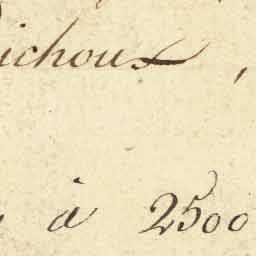 ichoux,
à 2500